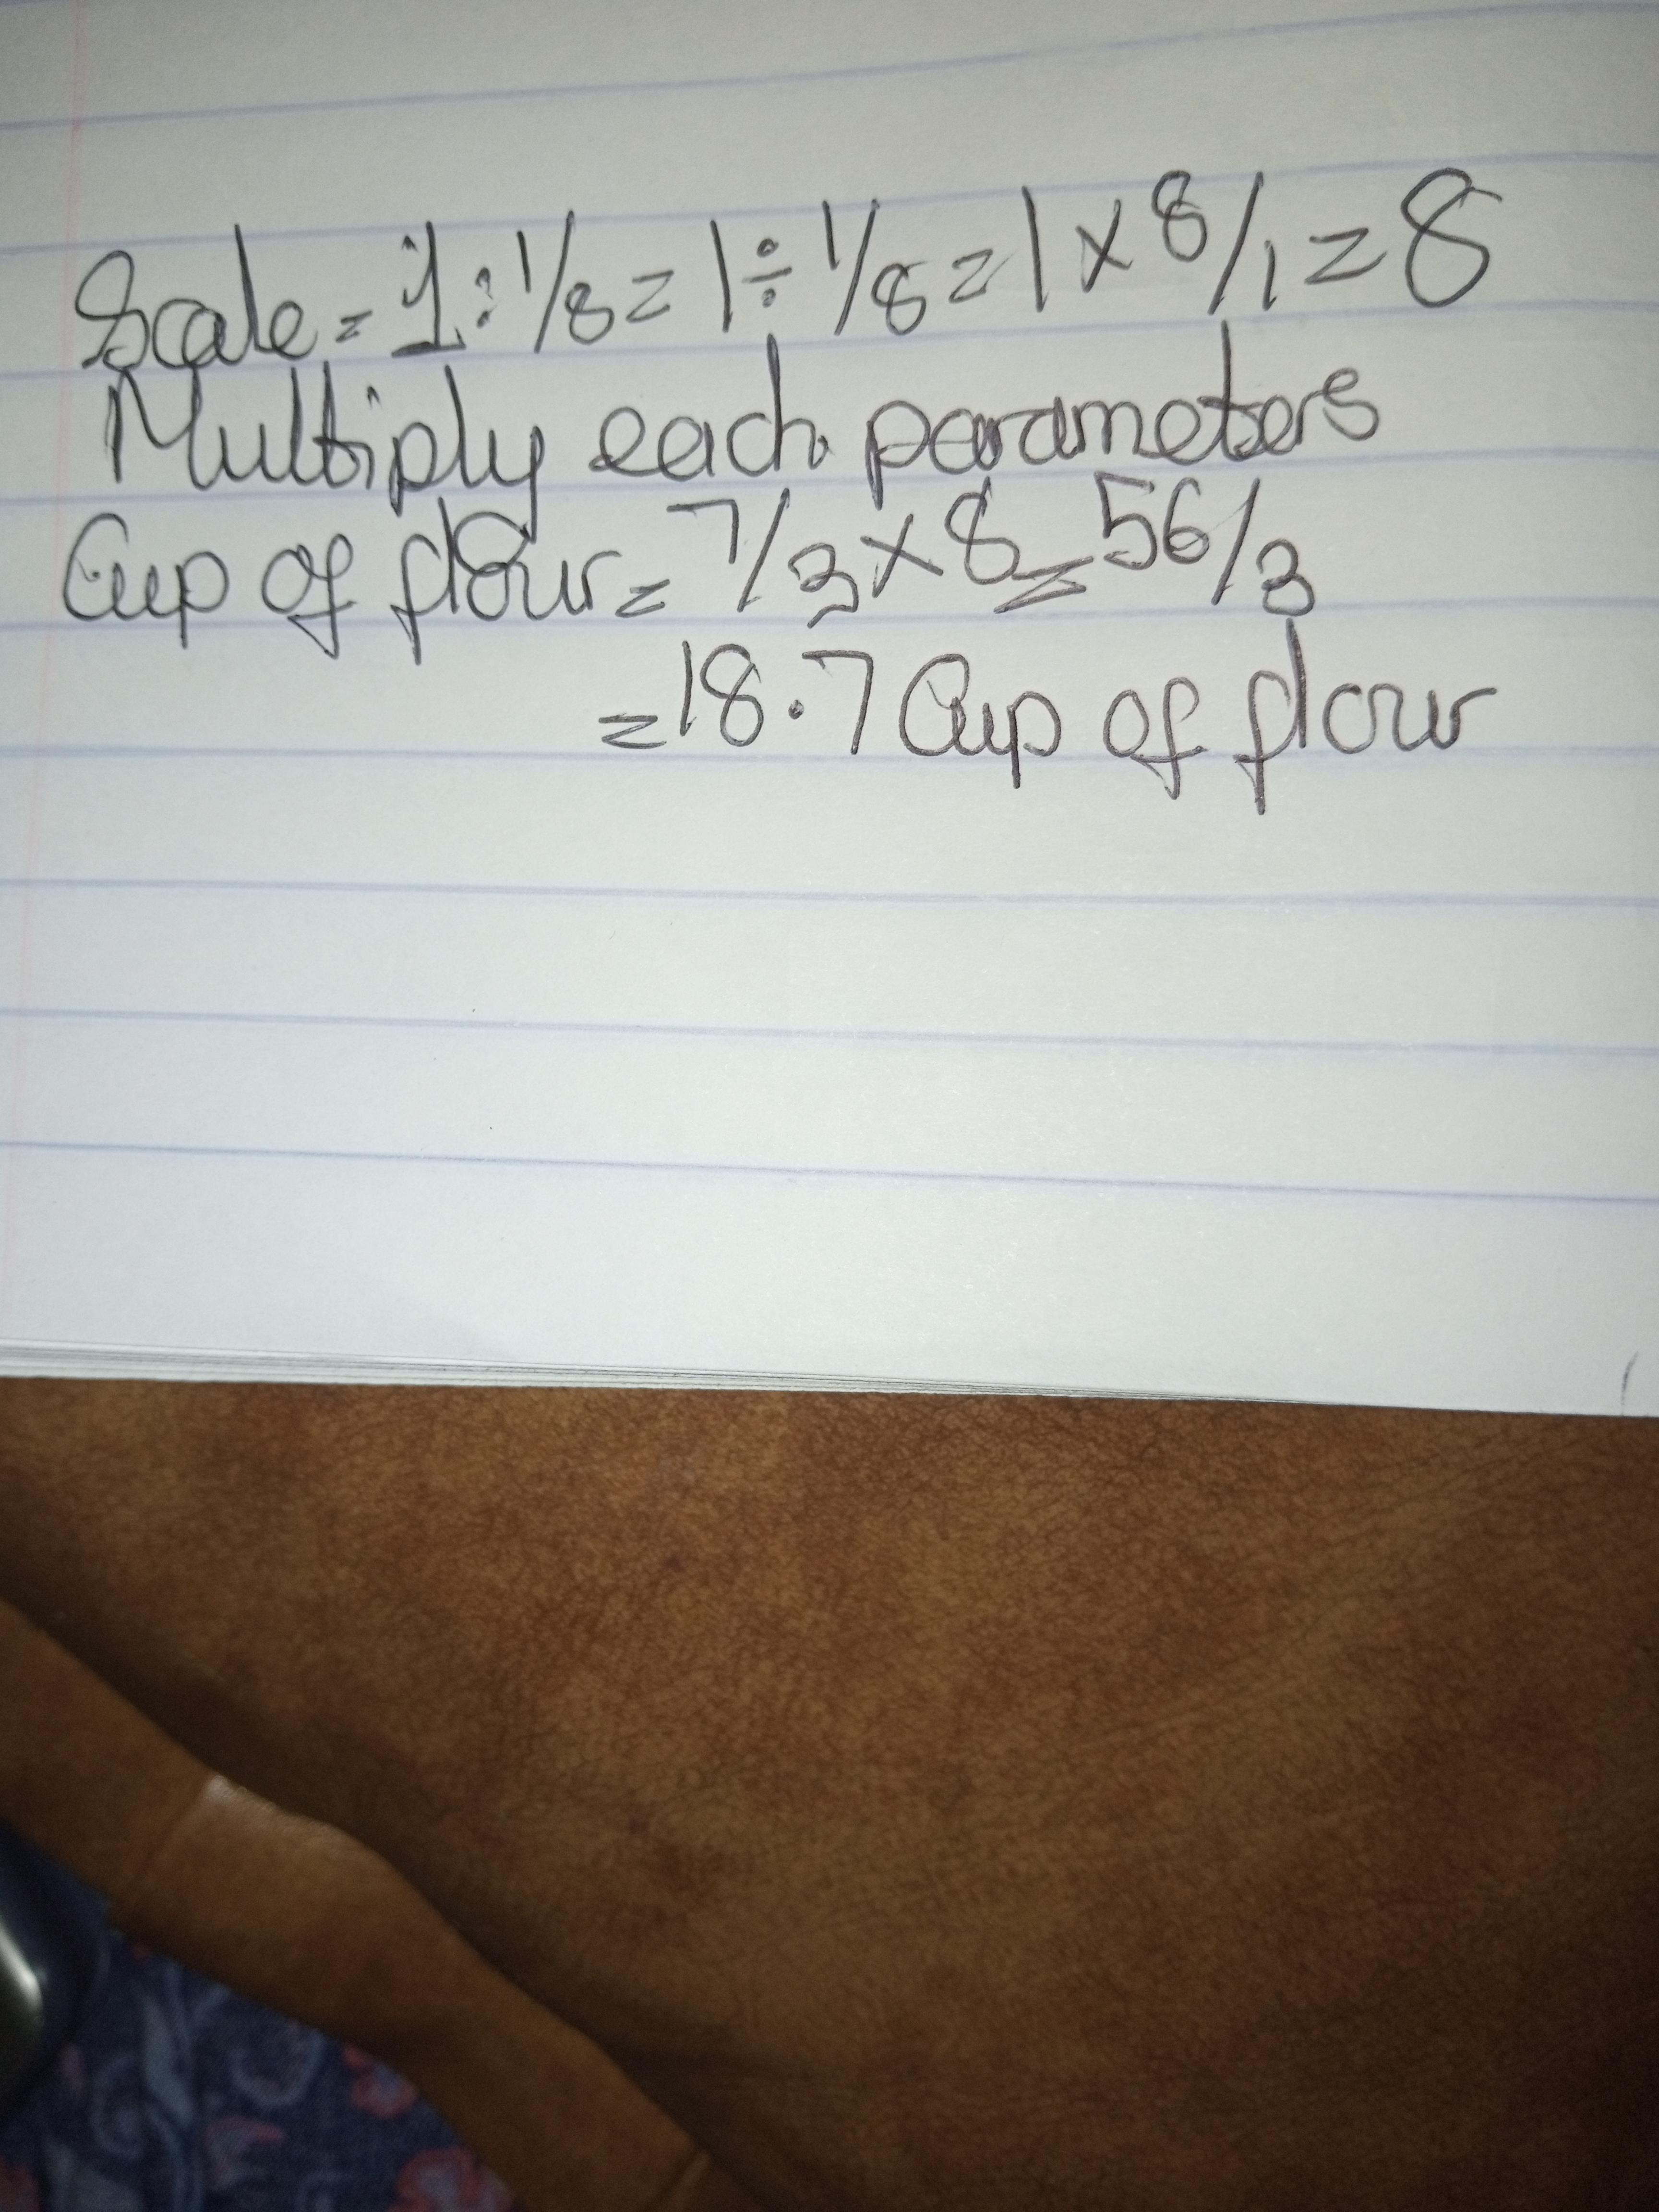 Scale = 1 : 1/8 = 1 ÷ 1/8 = 1 × 8/1 = 8
Multiply each parameters
Cup of flour = 7/3 × 8 = 56/3
= 18.7 Cup of flour